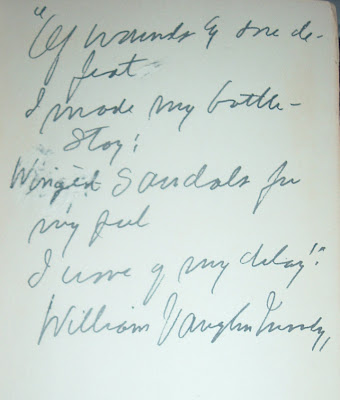 "Of wounds & sore de-
feat
I made my battle-
stay;
Wingèd sandals for
my feet
I wove of my delay";
William Vaughn Moody,